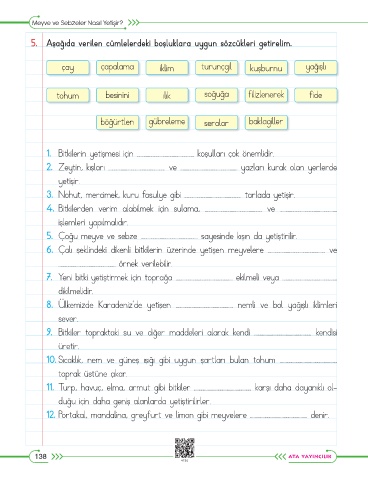 Meyve ve Sebzeler Nasıl Yetişir?
5. Aşağıda verilen cümlelerdeki boşluklara uygun sözcükleri getirelim.
çay çapalama iklim turunçgil kuşburnu yağışlı
tohum besinini ılık soğuğa filizlenerek fide
böğürtlen gübreleme seralar baklagiller
1. Bitkilerin yetişmesi için ........................ koşulları çok önemlidir.
2. Zeytin, kışları ........................ ve ........................ yazları kurak olan yerlerde
yetişir.
3. Nohut, mercimek, kuru fasulye gibi ........................ tarlada yetişir.
4. Bitkilerden verim alabilmek için sulama, ........................ ve ........................
işlemleri yapılmalıdır.
5. Çoğu meyve ve sebze ........................ sayesinde kışın da yetiştirilir.
6. Çalı şeklindeki dikenli bitkilerin üzerinde yetişen meyvelere ........................ ve
........................ örnek verilebilir.
7. Yeni bitki yetiştirmek için toprağa ........................ ekilmeli veya ........................
dikilmelidir.
8. Ülkemizde Karadeniz'de yetişen ........................ nemli ve bol yağışlı iklimleri
sever.
9. Bitkiler topraktaki su ve diğer maddeleri alarak kendi ........................ kendisi
üretir.
10. Sıcaklık, nem ve güneş ışığı gibi uygun şartları bulan tohum ........................
toprak üstüne çıkar.
11. Turp, havuç, elma, armut gibi bitkiler ........................ karşı daha dayanıklı ol-
duğu için daha geniş alanlarda yetiştirilirler.
12. Portakal, mandalina, greyfurt ve limon gibi meyvelere ........................ denir.
138
ATA YAYINCILIK